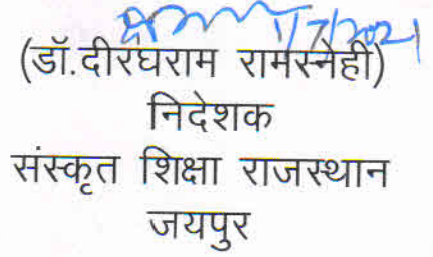 1/7/2021
(डॉ.दीरघराम रामस्नेही)
निदेशक
संस्कृत शिक्षा राजस्थान
जयपुर